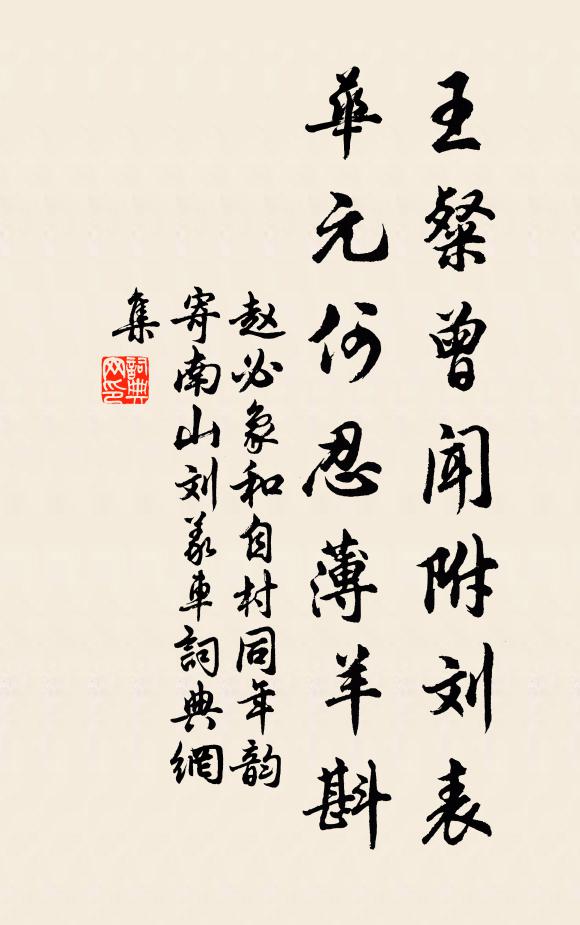 王粲曾闻附刘表
華元何忍薄羊斟
赵必象和自村同年韵
寄南山刘义车詞典網
集
詞典
网印